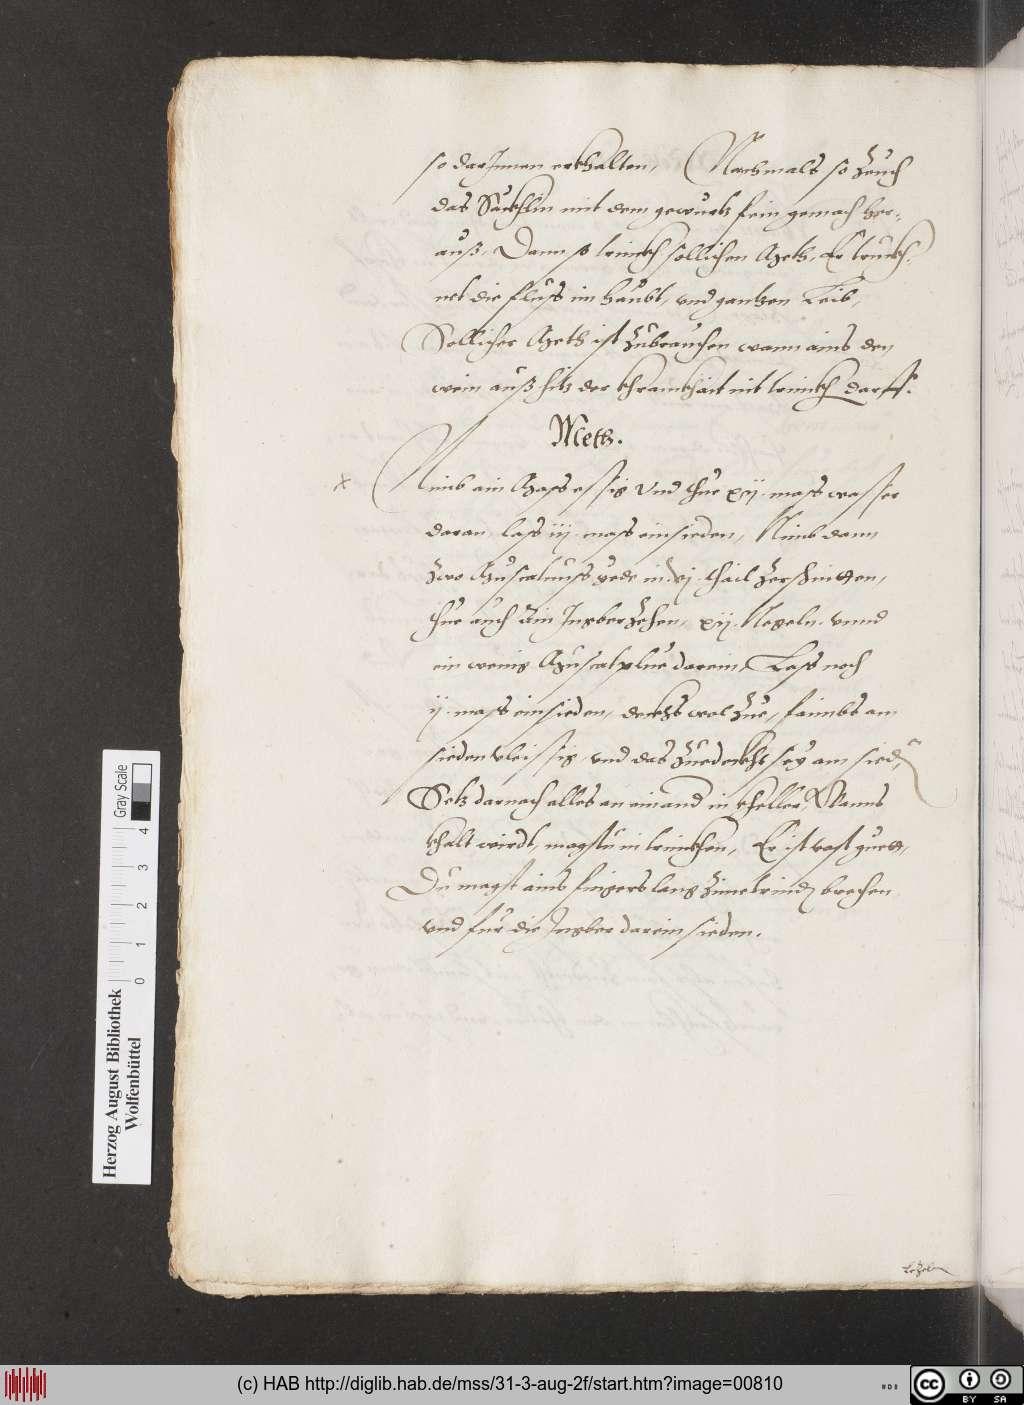 so darJnnen erkhalten, Nachmals so Zeuch
das Säckhlin mit dem gewurtz fein gemach her-
auß. Dann so trinckh sollichen Meth, Er truckh-
net die fluss im haubt, und gantzen Leib,
Sollicher Meth ist Zubrauchen wann ains den
wein auß hitz der khranckhait nit trinckh darff.
Meth.
x Nimb ain Mass essig Vnd thue xij mass wasser
daran, lass iij mass einsieden, Nimb dann
Zwo Muscatnuss yede in vj thail Zerschnitten,
thue auch ain Jngber Zehen, xij Negeln vnnd
ein wenig Muscatplue darein, Lass noch
ij mass einsieden, deckhs wol Zue, faimbs am
sieden vleissig, und das Zuedeckht sey am sieden
Setz darnach alles an einand in kheller, Wanns
khalt wirdt, magstu in trinckhen, Er ist vast guett,
Du magst ains fingers lang Zimetrinden brechen
und für die Jngber darein sieden.
Herzog August Bibliothek
Wolfenbüttel
0 1 2 3 4
Gray Scale
(c) HAB http://diglib.hab.de/mss/31-3-aug-2f/start.htm?image=00810
HAB
cc BY SA